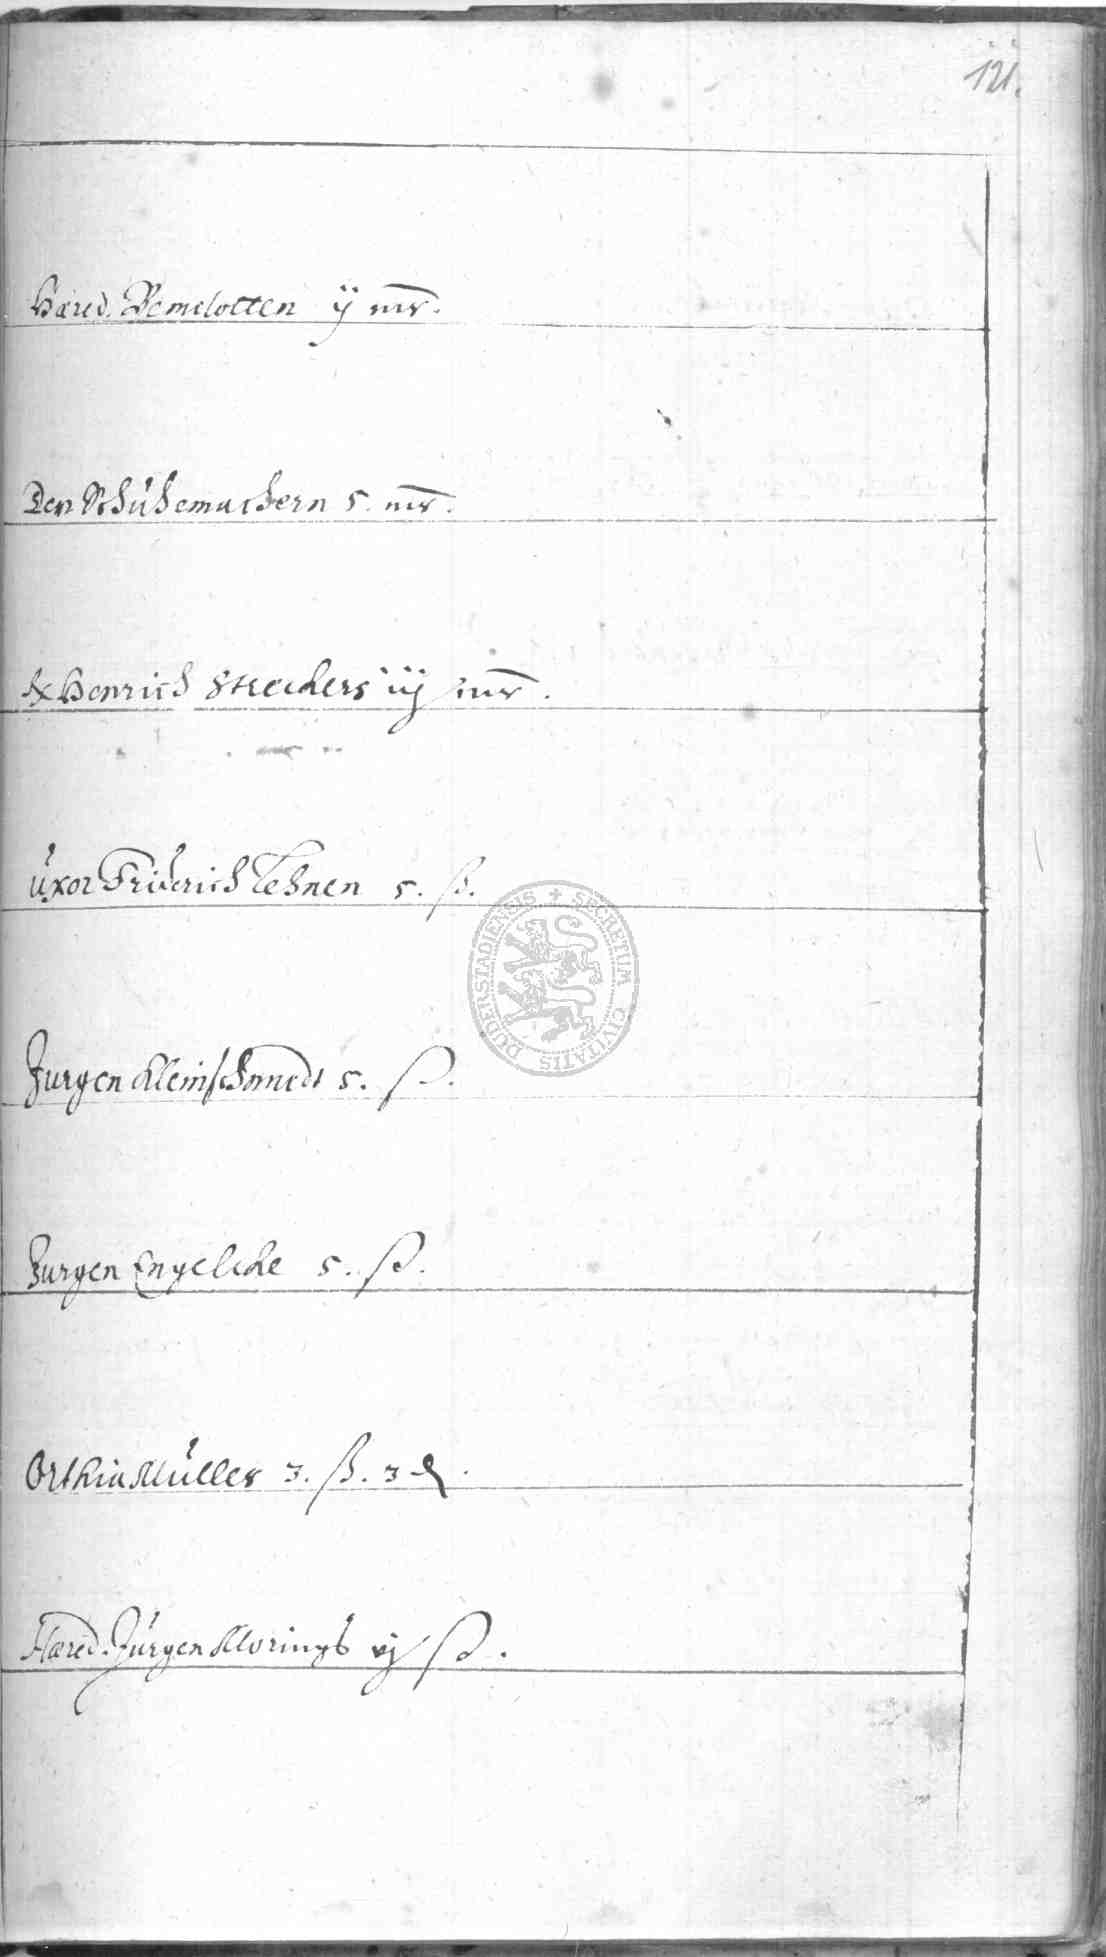 121.
Hæred. Bemelotten ij mr.
Den Schühemachern 5. mr.
Henrich Streckers iij mr.
Uxor Friderich Lehnen 5. ß.
Jurgen Kleinschmedt 5. ß.
Jurgen Engelcke 5. ß.
Orthia Müller 3. ß. 3 ₰.
Hæred. Jürgen Morings vj ß.
SECRETUM CIVITATIS DUDERSTADIENSIS